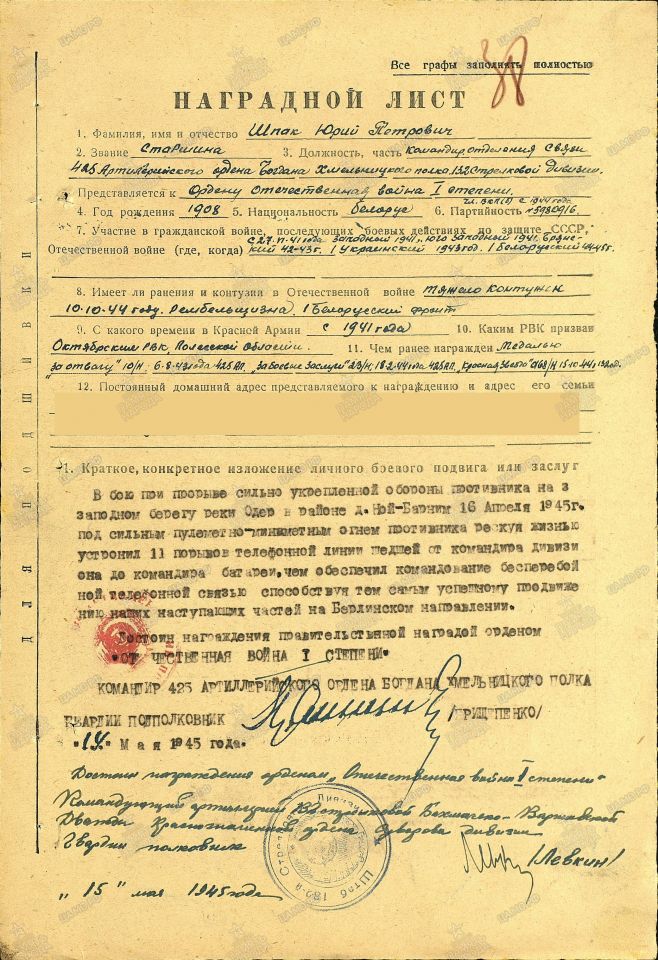 Все графы заполнять полностью
38
НАГРАДНОЙ ЛИСТ
1. Фамилия, имя и отчество Шпак Юрий Петрович
2. Звание Старшина 3. Должность, часть Командир отделения связи
425 Артиллерийского ордена Богдана Хмельницкого полка 132 Стрелковой дивизии.
Представляется к Ордену Отечественная война I степени.
4. Год рождения 1908 5. Национальность белорус 6. Партийность чл. ВКП(б) с 1944 года №5980916.
7. Участие в гражданской войне, последующих боевых действиях по защите СССР,
Отечественной войне (где, когда) С 27. 41 года Западной 1941, Юго Западной 1941, Брянский 42-43г. I Украинский 1943 год. I Белорусский 44-45г.
8. Имеет ли ранения и контузии в Отечественной войне тяжело контужен
10.10.44 году. Рембельщизна, I Белорусский фронт
9. С какого времени в Красной Армии с 1941 года 10. Каким РВК призван
Октябрским РВК Полесской области. 11. Чем ранее награжден Медалью
"за отвагу" 10/Н 6.8.43 года 425 АП, "За боевые заслуги" 23/Н, 18.2.44 года 425 АП, "Красная Звезда" 15.10.44г,
12. Постоянный домашний адрес представляемого к награждению и адрес его семьи
ДЛЯ ПОДШИВКИ
1. Краткое, конкретное изложение личного боевого подвига или заслуг
В бою при прорыве сильно укрепленной обороны противника на з
западном берегу реки Одер в районе д. Ной-Барним 16 Апреля 1945г.
под сильным пулеметно-минометным огнем противника рескуя жизнью
устронил 11 порывов телефонной линии шедшей от командира дивизи
она до командира батареи, чем обеспечил командование бесперебой
ной телефонной связью способствуя тем самым успешному продвиже
нию наших наступающих частей на Берлинском направлении.
Достоин награждения правительственной наградой орденом
"ОТ ЧЕСТВЕННАЯ ВОЙНА I СТЕПЕНИ".
КОМАНДИР 425 АРТИЛЛЕРИЙСКОГО ОРДЕНА БОГДАНА ХМЕЛЬНИЦКОГО ПОЛКА
ГВАРДИИ ПОДПОЛКОВНИК /ГРИЩЕНКО/
"14." Мая 1945 года.
Достоин награждения орденом "Отечественная война I степени"
Командующий артиллерией 132 стрелковой Бахмачско-Варшавской
Дважды Краснознаменной ордена Суворова дивизии
Гвардии полковник /Левкин/
"15" мая 1945 года